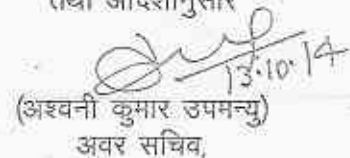 तथा आदेशानुसार
13.10.14
(अश्वनी कुमार उपमन्यु)
अवर सचिव,